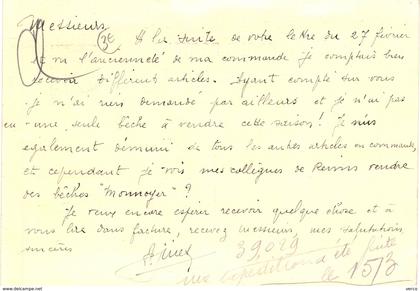 Messieurs
A la suite de votre lettre du 27 février
et vu l'ancienneté de ma commande je comptais bien
recevoir différent articles. Ayant compté sur vous
je n'ai rien demandé par ailleurs et je n'ai pas
eu une seule bêche à vendre cette saison! Je suis
également démuni de tous les autres articles en commande,
et cependant je vois mes collègues de Rennes vendre
des bêches "Monnoyer"?
Je veux encore espérer recevoir quelque chose et à
vous lire dans facture, recevez messieurs, mes salutations
sincères
39029
une expédition a été faite
le 15/3